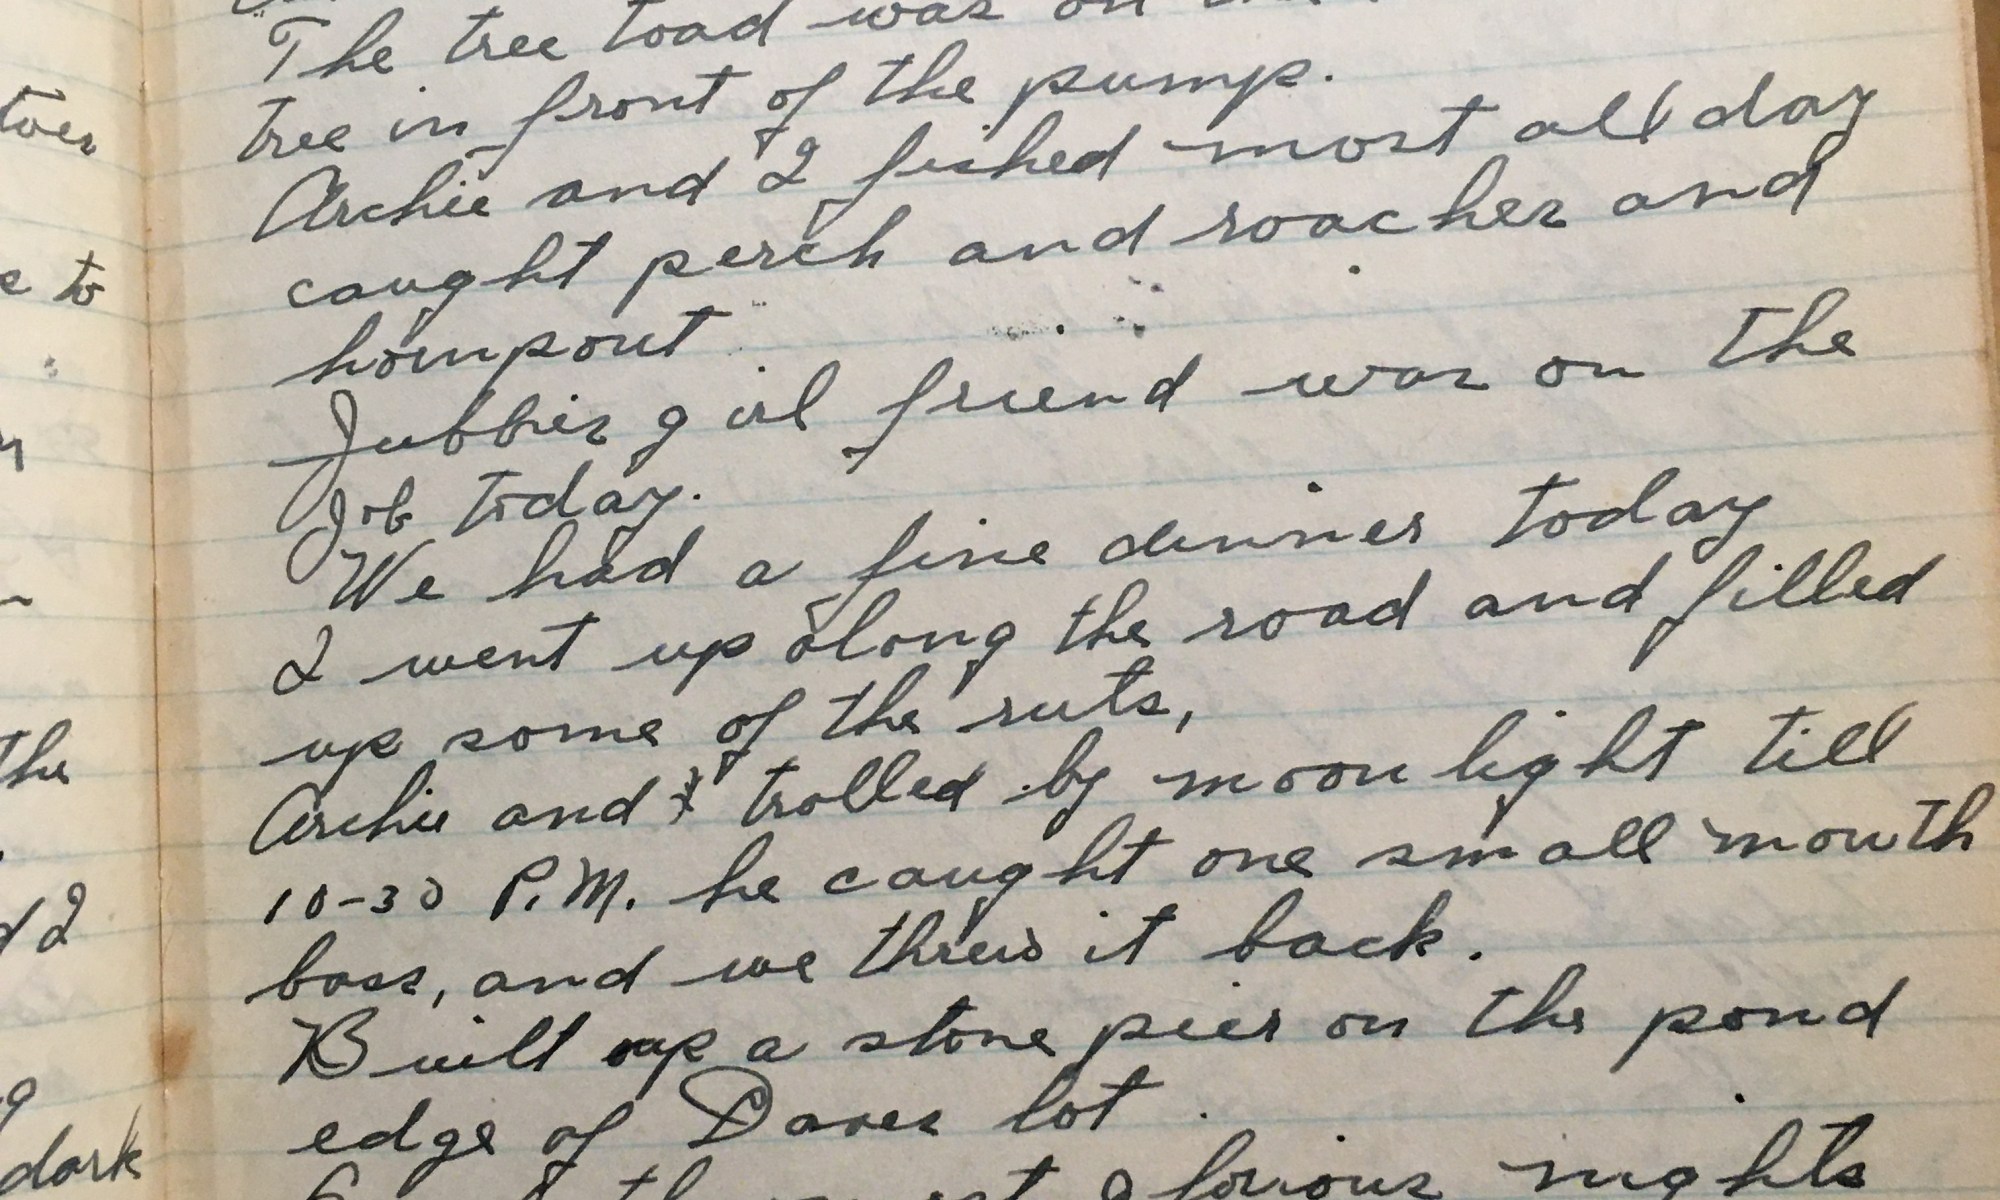 The tree toad was on
tree in front of the pump.
Archie and I fished most all day
caught perch and roaches and
hornpout
Jubbies girl friend was on the
Job today.
We had a fine dinner today
I went up along the road and filled
up some of the ruts,
Archie and I trolled by moon light till
10-30 P.M. he caught one small mouth
bass, and we threw it back.
Built up a stone pier on the pond
edge of Daves lot.
glorious nights
to
the
I
dark